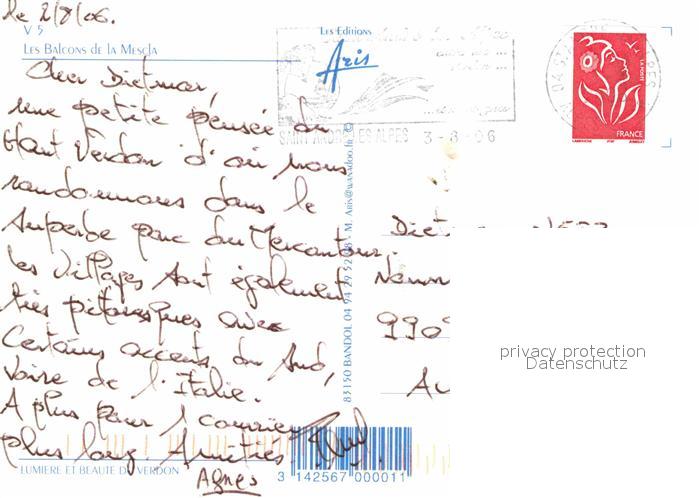 le 2/8/06.
V 5
Les Balcons de la Mescla
Les Editions
Aris
Cher Dietmar,
une petite pensée du
Haut Verdon d'où nous
randonnons dans le
superbe parc du Mercantour.
les villages sont également
très pitoresques avec
Certains accents du Sud,
voire de l'Italie.
A plus pour 1 courrier
plus long. Amitiés.
Agnès
LUMIERE ET BEAUTE DU VERDON
3 142567 000011
83150 BANDOL 04 94 29 52
M. Aris@wanadoo.fr ©
SAINT ANDRE LES ALPES 3-8-06
LA POSTE
FRANCE
Diet
990
Au
privacy protection
Datenschutz